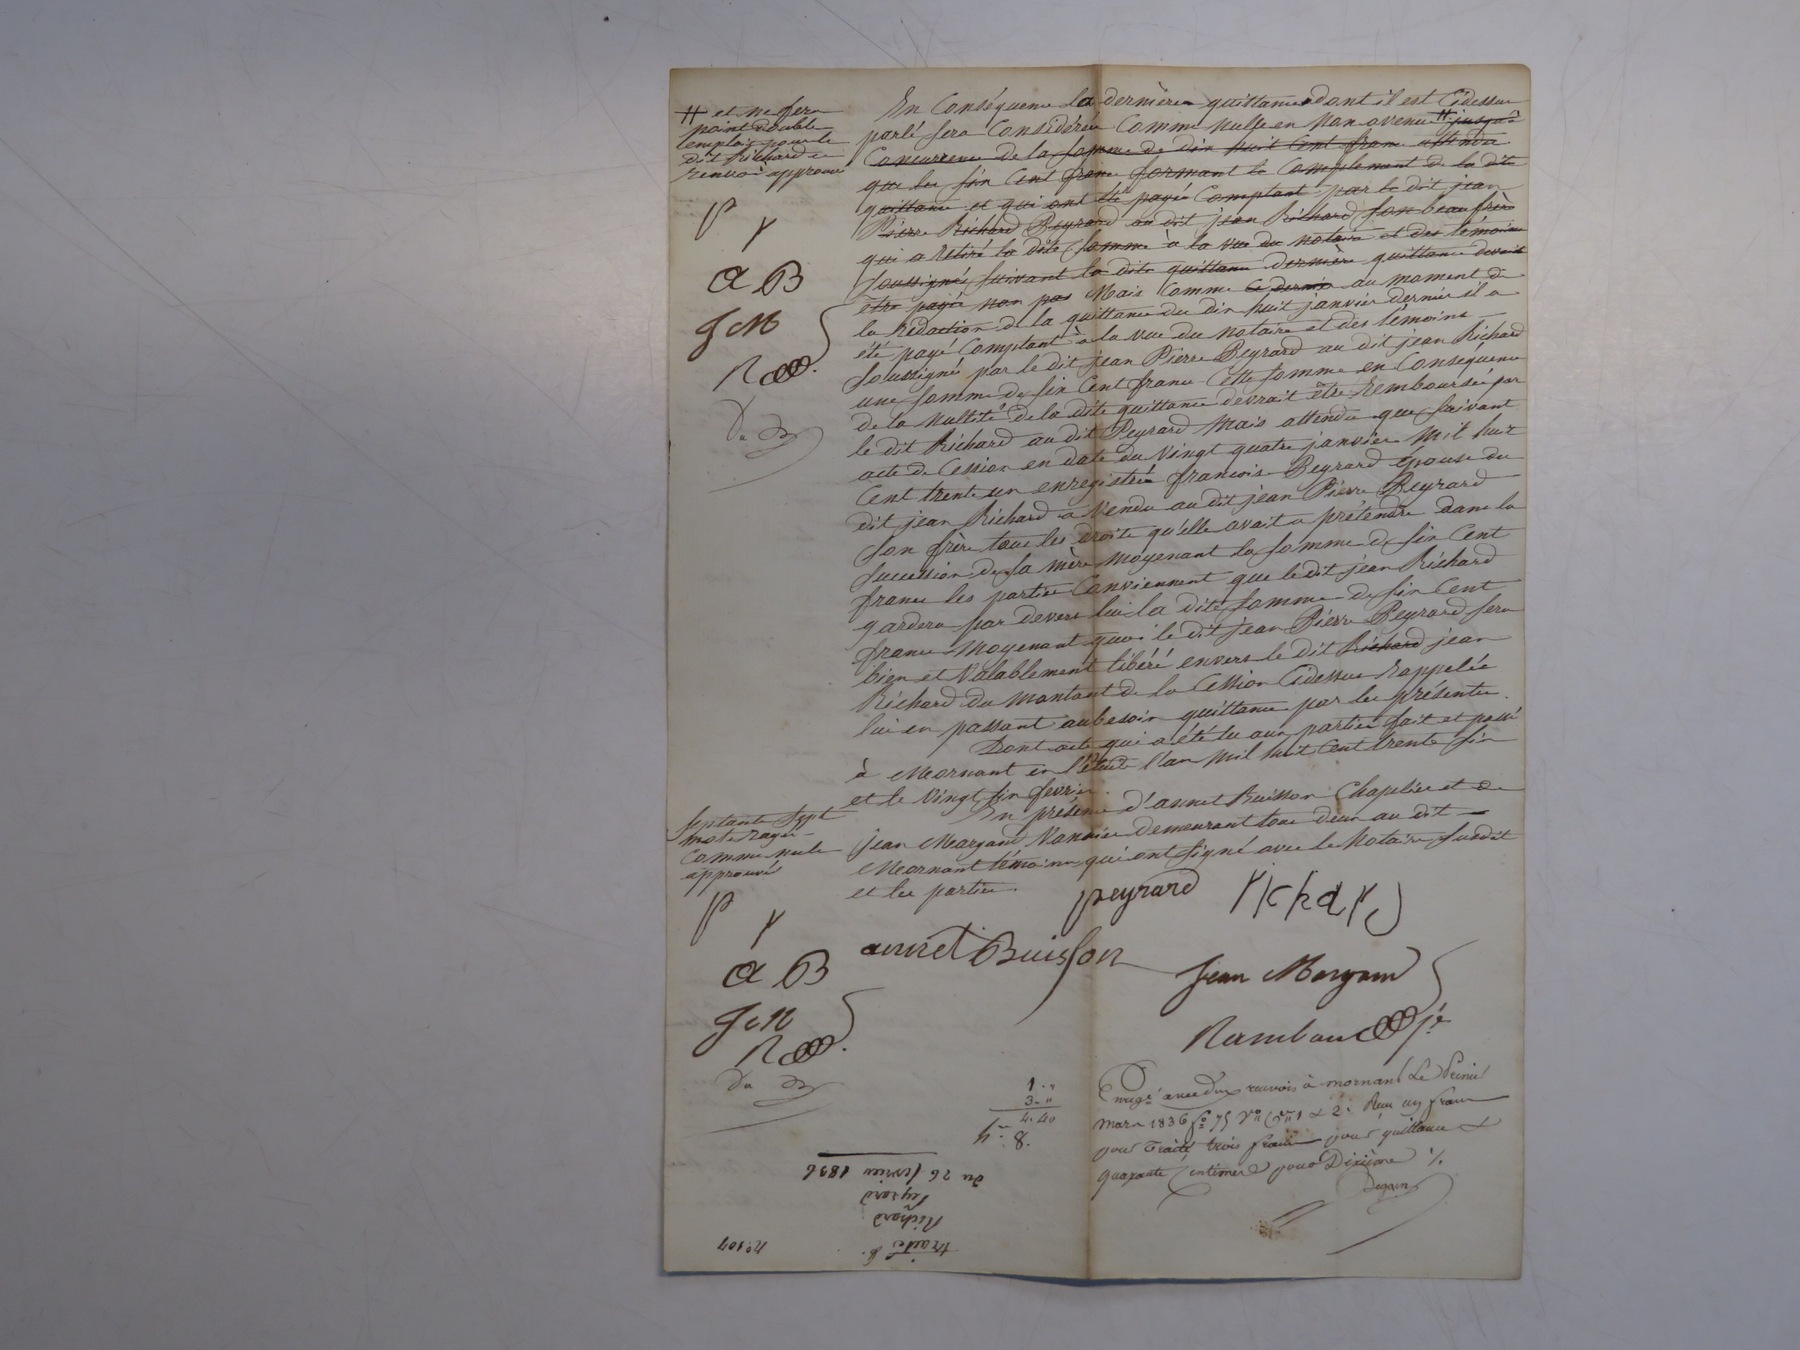 En Conséquence la dernière quittance dont il est Cidessus
parlé sera Considérée Comme nulle en non avenue # jusqu'à
Concurrence de la somme de dix huit Cent francs attendu
que les six Cent francs formant le Complement de la dite
quittance et qui ont été payés Comptant par le dit jean
Pierre Richard Peyrard au dit jean Richard son beau frère
qui a retiré la dite somme à la vue du notaire et des témoins
soussignés suivant la dite quittance dernière quittance devait
être payée non pas Mais Comme ce dernier au moment de
la Rédaction de la quittance du dix huit janvier dernier il a
été payé Comptant à la vue du notaire et des témoins
soussignés par le dit jean Pierre Peyrard au dit jean Richard
une somme de six Cent francs Cette somme en Conséquence
de la nullité de la dite quittance devrait être Remboursée par
le dit Richard au dit Peyrard Mais attendu que suivant
acte de Cession en date du Vingt quatre janvier Mil huit
Cent trente un enregistré françoise Peyrard épouse du
dit jean Richard a Vendu au dit jean Pierre Peyrard
son frère tous les droits qu'elle avait a prétendre dans la
succession de sa mère Moyenant la somme de six Cent
francs les parties Conviennent que le dit jean Richard
gardera par devers lui la dite somme de six Cent
francs Moyenant quoi le dit jean Pierre Peyrard sera
bien et Valablement libéré envers le dit Richard jean
Richard du montant de la Cession Cidessus Rappelée
lui en passant au besoin quittance par les présentes.
Dont acte qui a été lu aux parties fait et passé
à Mornant en l'étude l'an Mil huit Cent trente six
et le Vingt six fevrier.
En présence d'annet Buisson Chaplier et de
jean Margand Vannier demeurant tous deux au dit
Mornant témoins qui ont signé avec le Notaire susdit
et les parties.
# et ne fera
point double
emploi pour le
dit Richard
renvoi approuvé
P r
a B
J M
R
septante sept
mots rayés
Comme nuls
approuvés
P r
a B
J M
R
peyrard richard
annet Buisson
Jean Margand
Rambaud
Enregé avec deux renvois à mornant Le Premier
mars 1836 fo 75 Vo Ces 1 & 2. Reçu un franc
pour Traité trois francs pour quittance &
quarante centimes pour Dixième %
1. "
3. "
4. 40
8.
du 26 fevrier 1836
Peyrard
Richard
traité
no 107